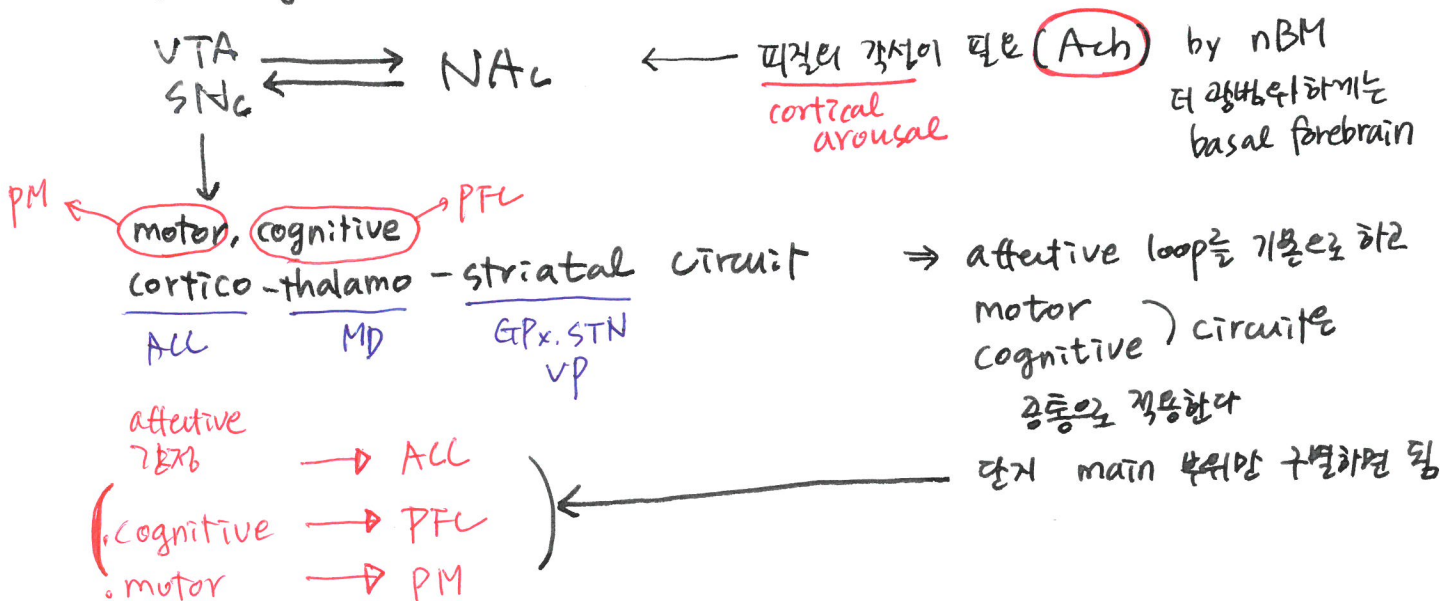 VTA
SNc
NAc
피질의 각성이 필요 (Ach) by nBM
cortical
arousal
더 광범위하게는
basal forebrain
PM
PFC
motor, cognitive
cortico-thalamo-striatal circuit
ACC
MD
GPx. STN
VP
⇒ affective loop를 기본으로 하고
motor
cognitive ) circuit은
공통으로 적용한다
단지 main 부위만 구별하면 됨
affective
감정 → ACC
. cognitive → PFC
. motor → PM